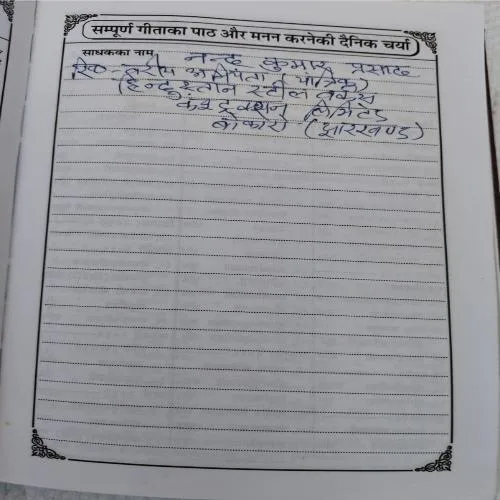 सम्पूर्ण गीताका पाठ और मनन करनेकी दैनिक चर्या
साधकका नाम नन्द कुमार प्रसाद
वरीय अभियंता (यांत्रिक)
(हिन्दुस्तान स्टील वर्क्स
कंस्ट्रक्शन लिमिटेड
बोकारो (झारखण्ड)